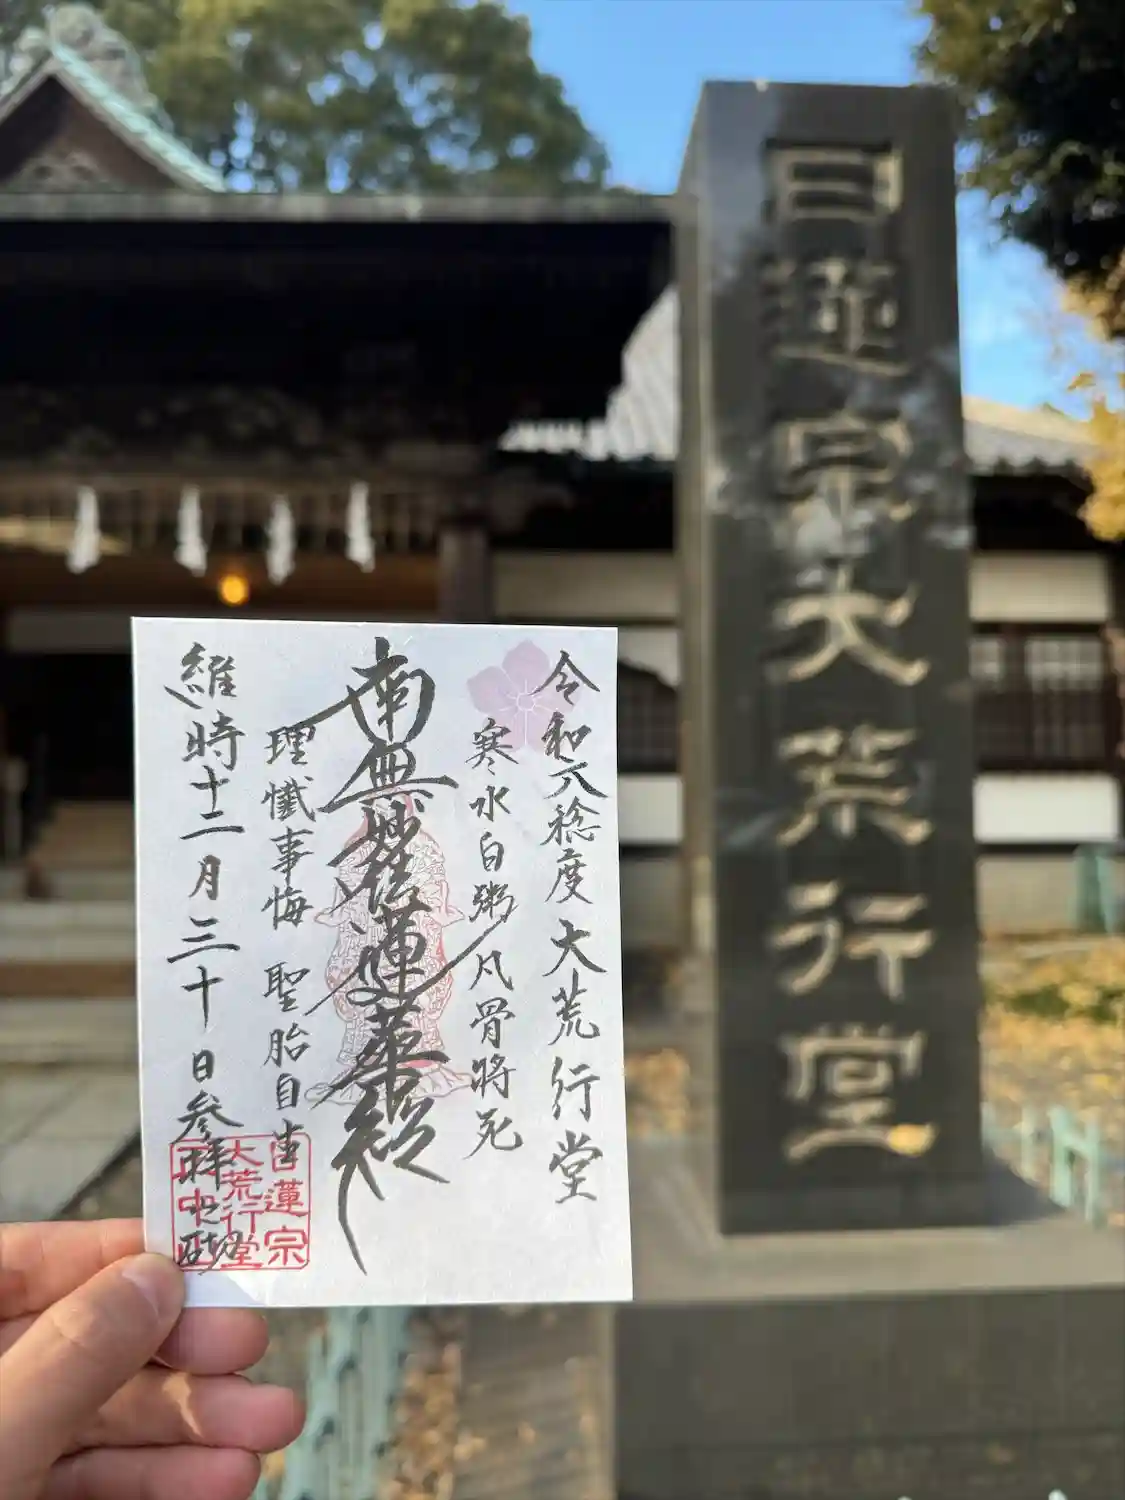 令和六稔度大荒行堂
寒水白粥凡骨将死
南無妙法蓮華経
理懺事悔 聖胎自生
維時十二月三十日参拝之砌
日蓮宗
大荒行堂
日蓮宗大荒行堂